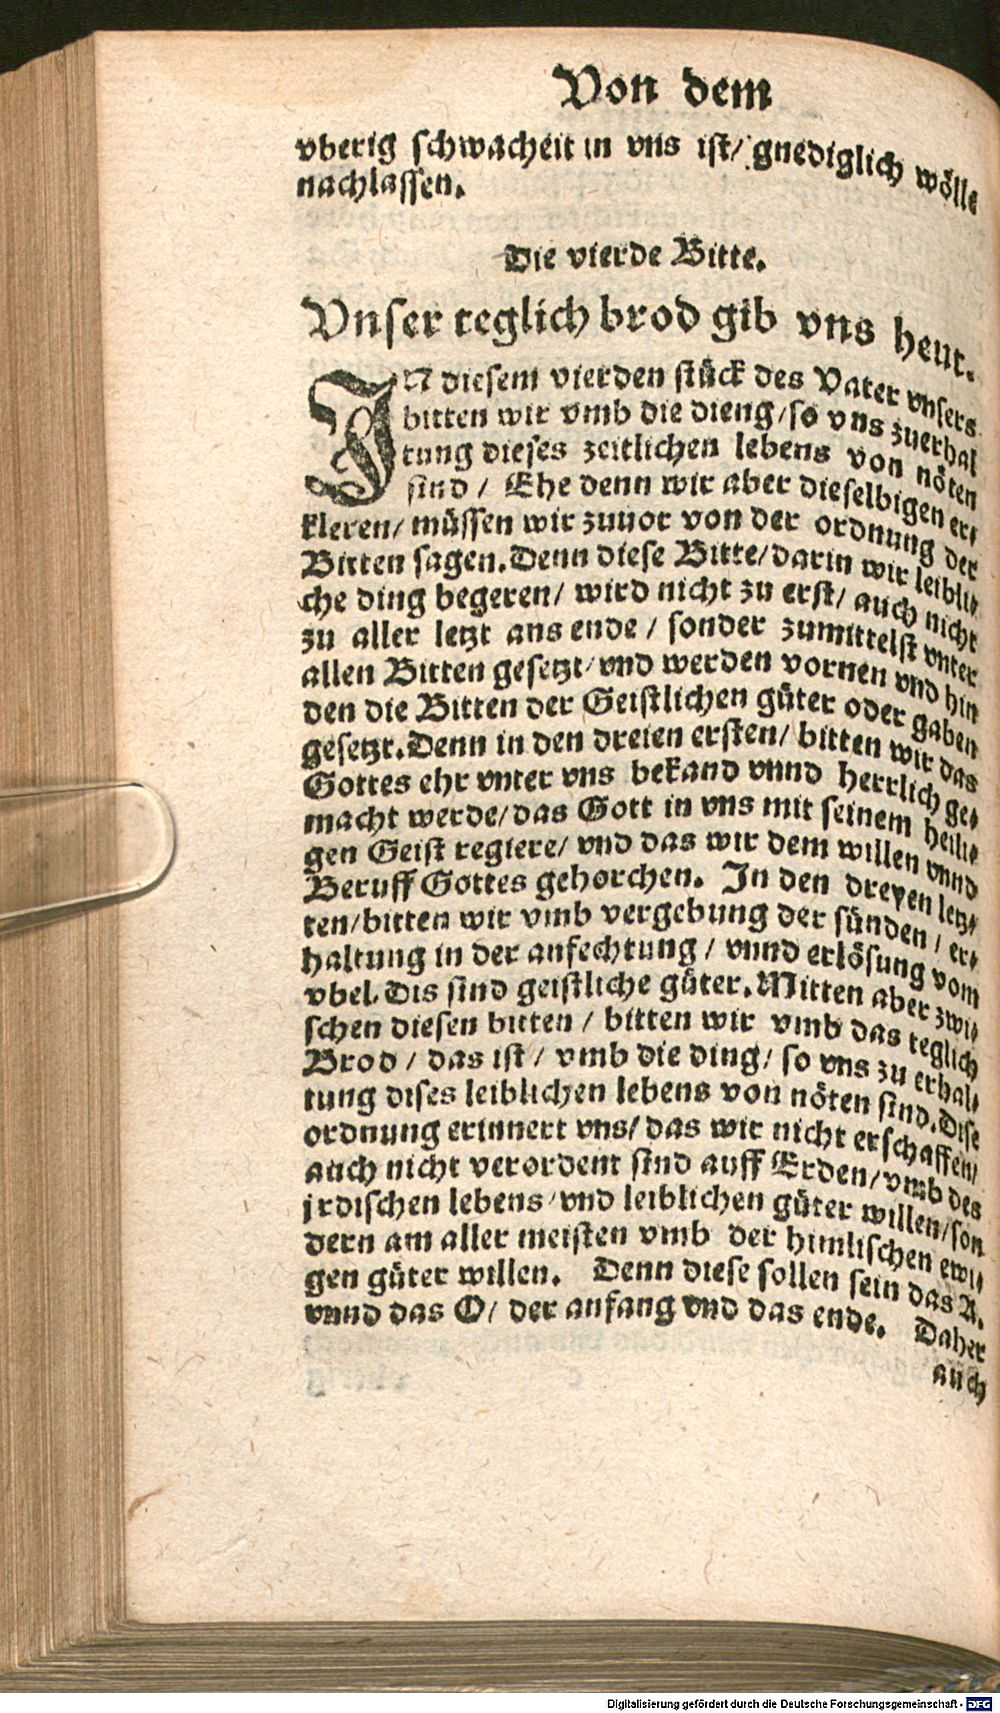 Von dem
vberig schwacheit in vns ist/ gnediglich wölle
nachlassen.
Die vierde Bitte.
Vnser teglich brod gib vns heut.
IN diesem vierden stück des Vater vnsers
bitten wir vmb die dieng/so vns zuerhal
tung dieses zeitlichen lebens von nöten
sind / Ehe denn wir aber dieselbigen er⸗
kleren/ müssen wir zuuor von der ordnung der
Bitten sagen. Denn diese Bitte/darin wir leibli⸗
che ding begeren/ wird nicht zu erst/ auch nicht
zu aller letzt ans ende / sonder zumittelst vnter
allen Bitten gesetzt/vnd werden vornen vnd hin
den die Bitten der Geistlichen güter oder gaben
gesetzt. Denn in den dreien ersten/ bitten wir das
Gottes ehr vnter vns bekand vnnd herrlich ge⸗
macht werde/das Gott in vns mit seinem heili⸗
gen Geist regiere/ vnd das wir dem willen vnnd
Beruff Gottes gehorchen. In den dreyen letz⸗
ten/bitten wir vmb vergebung der sünden / er⸗
haltung in der anfechtung / vnnd erlösung vom
vbel. Dis sind geistliche güter. Mitten aber zwi⸗
schen diesen bitten / bitten wir vmb das teglich
Brod / das ist / vmb die ding/ so vns zu erhal⸗
tung dises leiblichen lebens von nöten sind. Dise
ordnung erinnert vns/ das wir nicht erschaffen/
auch nicht verordent sind auff Erden/vmb des
jrdischen lebens/vnd leiblichen güter willen/son
dern am aller meisten vmb der himlischen ewi⸗
gen güter willen. Denn diese sollen sein das A.
vnnd das O/ der anfang vnd das ende. Daher
auch
Digitalisierung gefördert durch die Deutsche Forschungsgemeinschaft - DFG